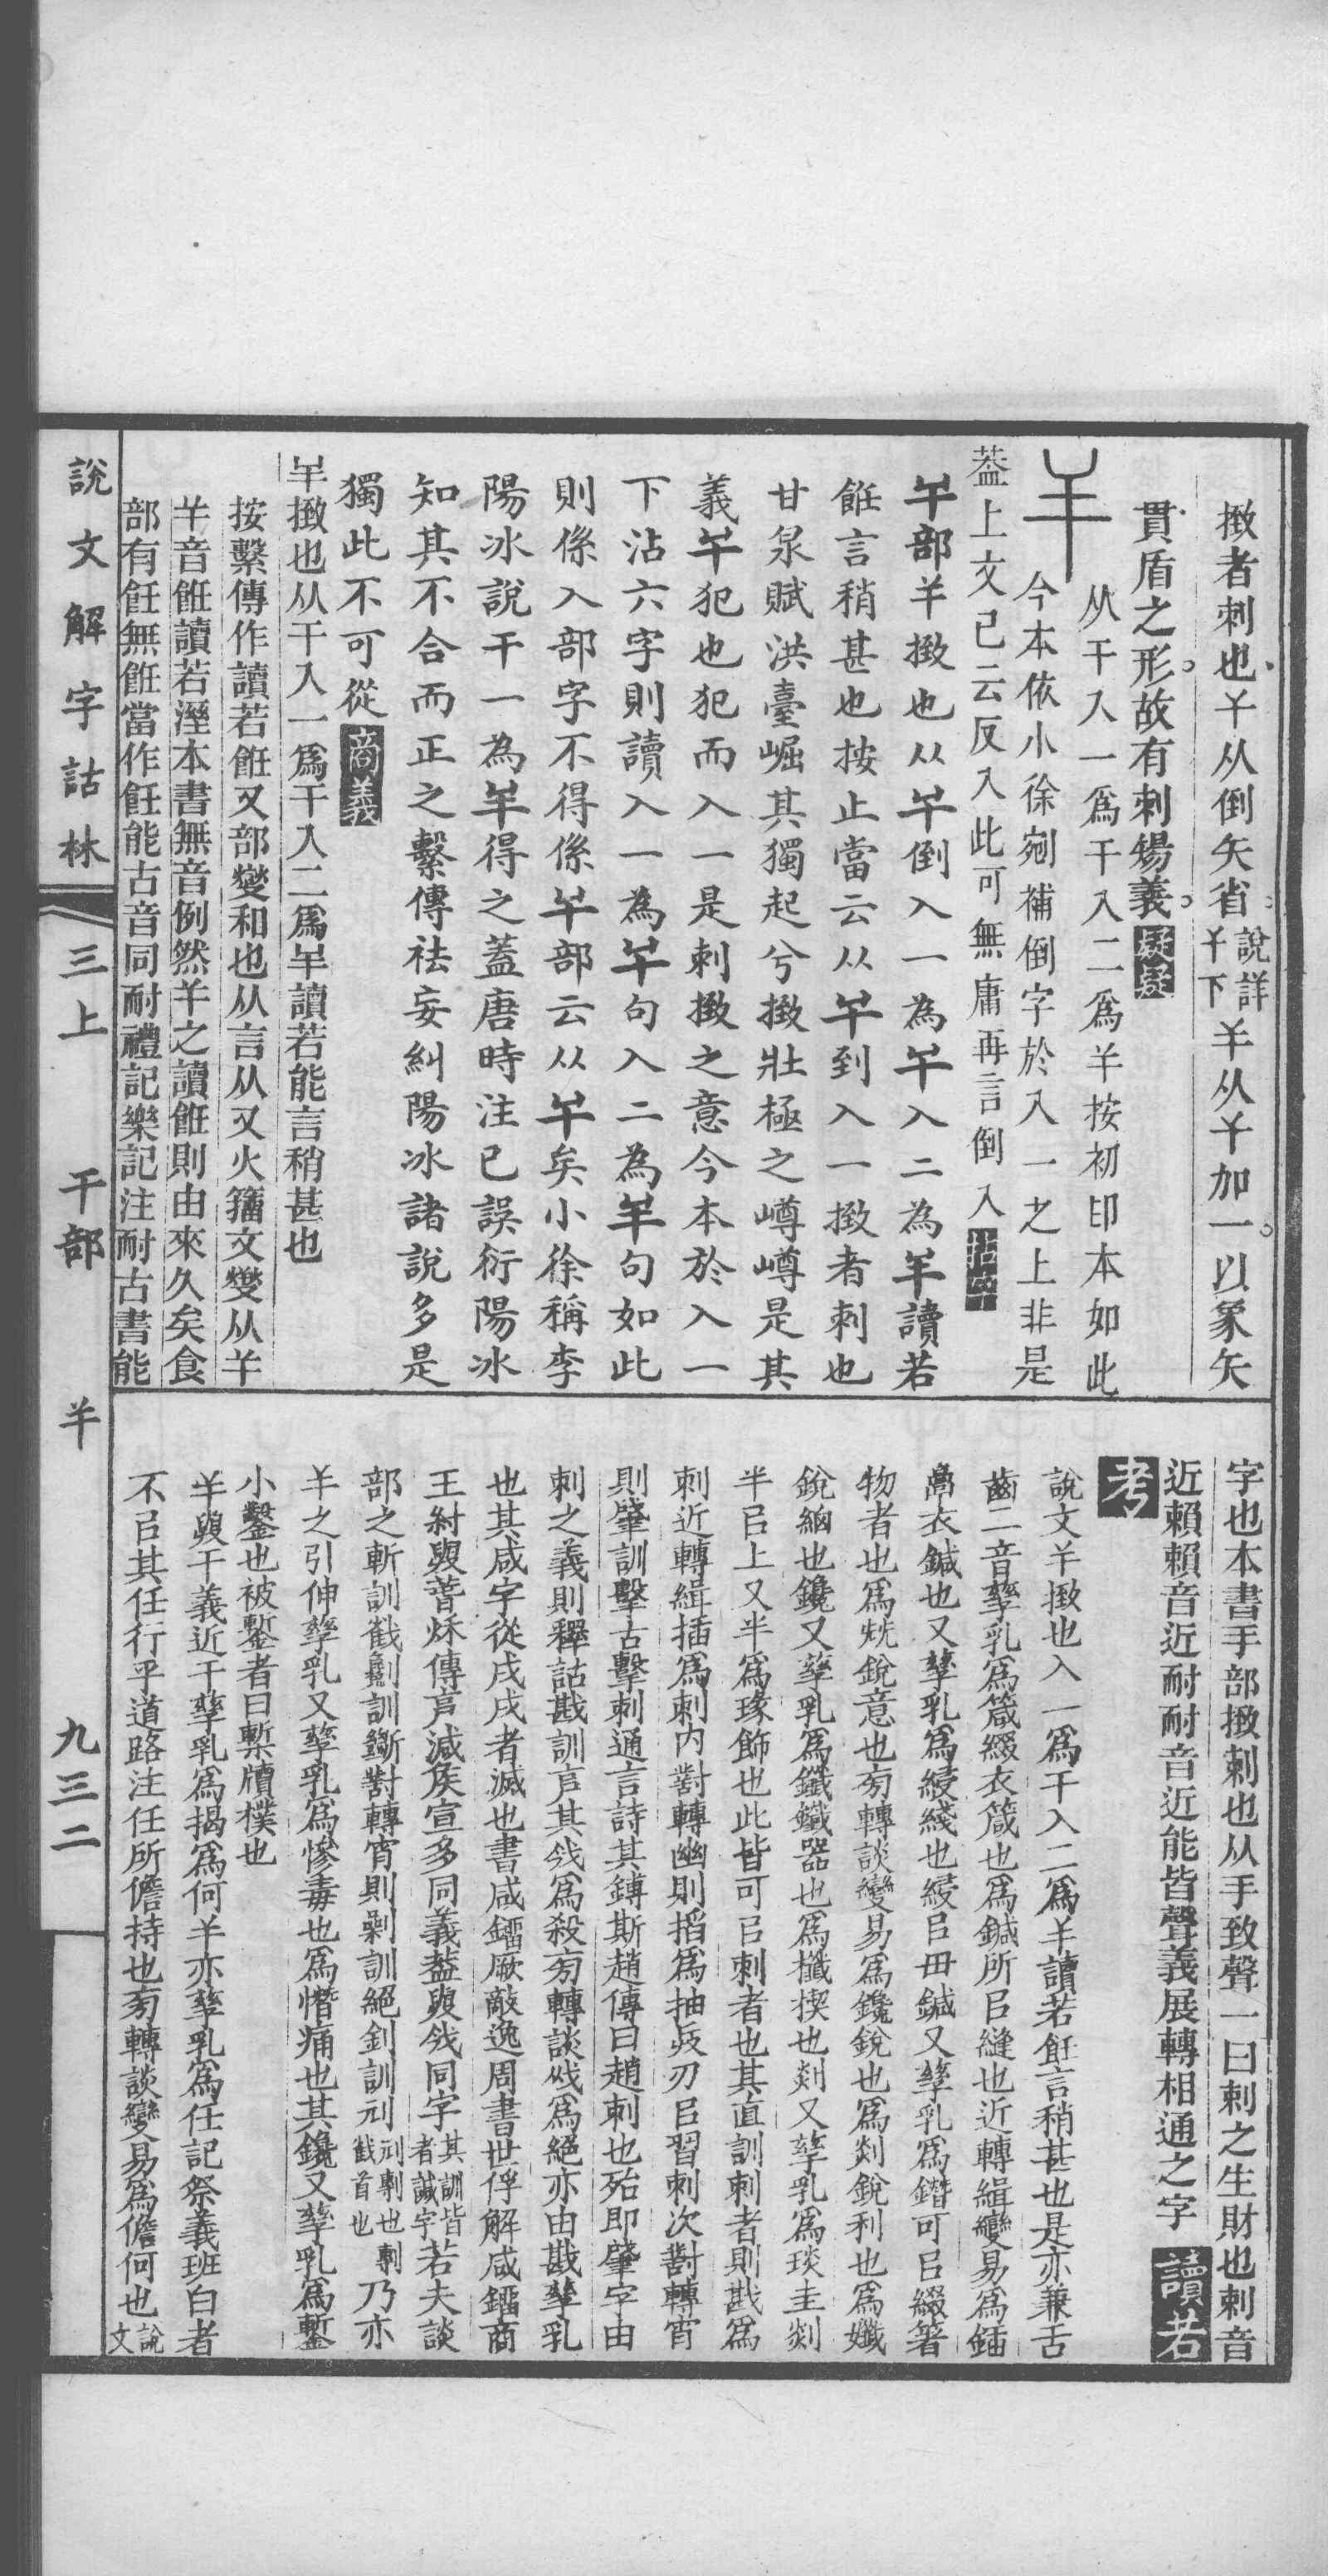 撖者刺也𢆉从倒矢省說詳𢆉下𢆉从𢆉加一以象矢
貫盾之形故有刺錫義疑疑
从干入一爲干入二爲𢆉按初印本如此
今本依小徐剜補倒字於入一之上非是
葢上文已云反入此可無庸再言倒入
𢆉部𢆉撖也从𢆉倒入一為𢆉入二為𢆉讀若
飪言稍甚也按止當云从𢆉到入一撖者刺也
甘泉賦洪臺崛其獨起兮撖壯極之嶟嶟是其
義𢆉犯也犯而入一是刺撖之意今本於入一
下沾六字則讀入一為𢆉句入二為𢆉句如此
則係入部字不得係𢆉部云从𢆉矣小徐稱李
陽冰說干一為𢆉得之蓋唐時注已誤衍陽冰
知其不合而正之繫傳祛妄糾陽冰諸說多是
獨此不可從商義
𢆉撖也从干入一爲干入二爲𢆉讀若能言稍甚也
按繫傳作讀若飪又部燮和也从言从又火籒文燮从𢆉
𢆉音飪讀若溼本書無音例然𢆉之讀飪則由來久矣食
部有飪無飪當作飪能古音同耐禮記樂記注耐古書能
字也本書手部撖刺也从手致聲一曰刺之生財也刺音
近賴賴音近耐耐音近能皆聲義展轉相通之字讀若
考
說文𢆉撖也入一爲干入二爲𢆉讀若飪言稍甚也是亦兼舌
齒二音孳乳爲箴綴衣箴也爲鍼所㠯縫也近轉緝變易爲鍤
衣鍼也又孳乳爲綅綫也綅㠯毌鍼又孳乳爲鐕可㠯綴箸
物者也爲兂銳意也㫄轉談變易爲鑱銳也爲剡銳利也爲孅
銳細也鑱又孳乳爲鑯鐵器也爲櫼楔也剡又孳乳爲琰圭剡
半㠯上又半爲瑑飾也此皆可㠯刺者也其直訓刺者則戡爲
刺近轉緝插爲刺内對轉幽則搯爲抽兵刃㠯習刺次對轉宵
則肇訓擊古擊刺通言詩其鎛斯趙傳曰趙刺也殆即肇字由
刺之義則釋詁戡訓克其戏爲殺㫄轉談㦰爲絕亦由戡孳乳
也其咸字從戌戌者滅也書咸劉厥敵逸周書世俘解咸劉商
王紂與春秋傳克減侯宣多同義葢與戏同字其訓皆者諴字若夫談
部之斬訓𢧵劖訓斷對轉宵則剿訓絕釗訓刓刓剸也剸𢧵首也乃亦
𢆉之引伸孳乳又孳乳爲慘毒也爲憯痛也其鑱又孳乳爲鏨
小鑿也被鏨者曰槧牘樸也
𢆉與干義近干孳乳爲揭爲何𢆉亦孳乳爲任記祭義班白者
不㠯其任行乎道路注任所儋持也㫄轉談變易爲儋何也說文
說文解字詁林　三上　干部　𢆉　九三二